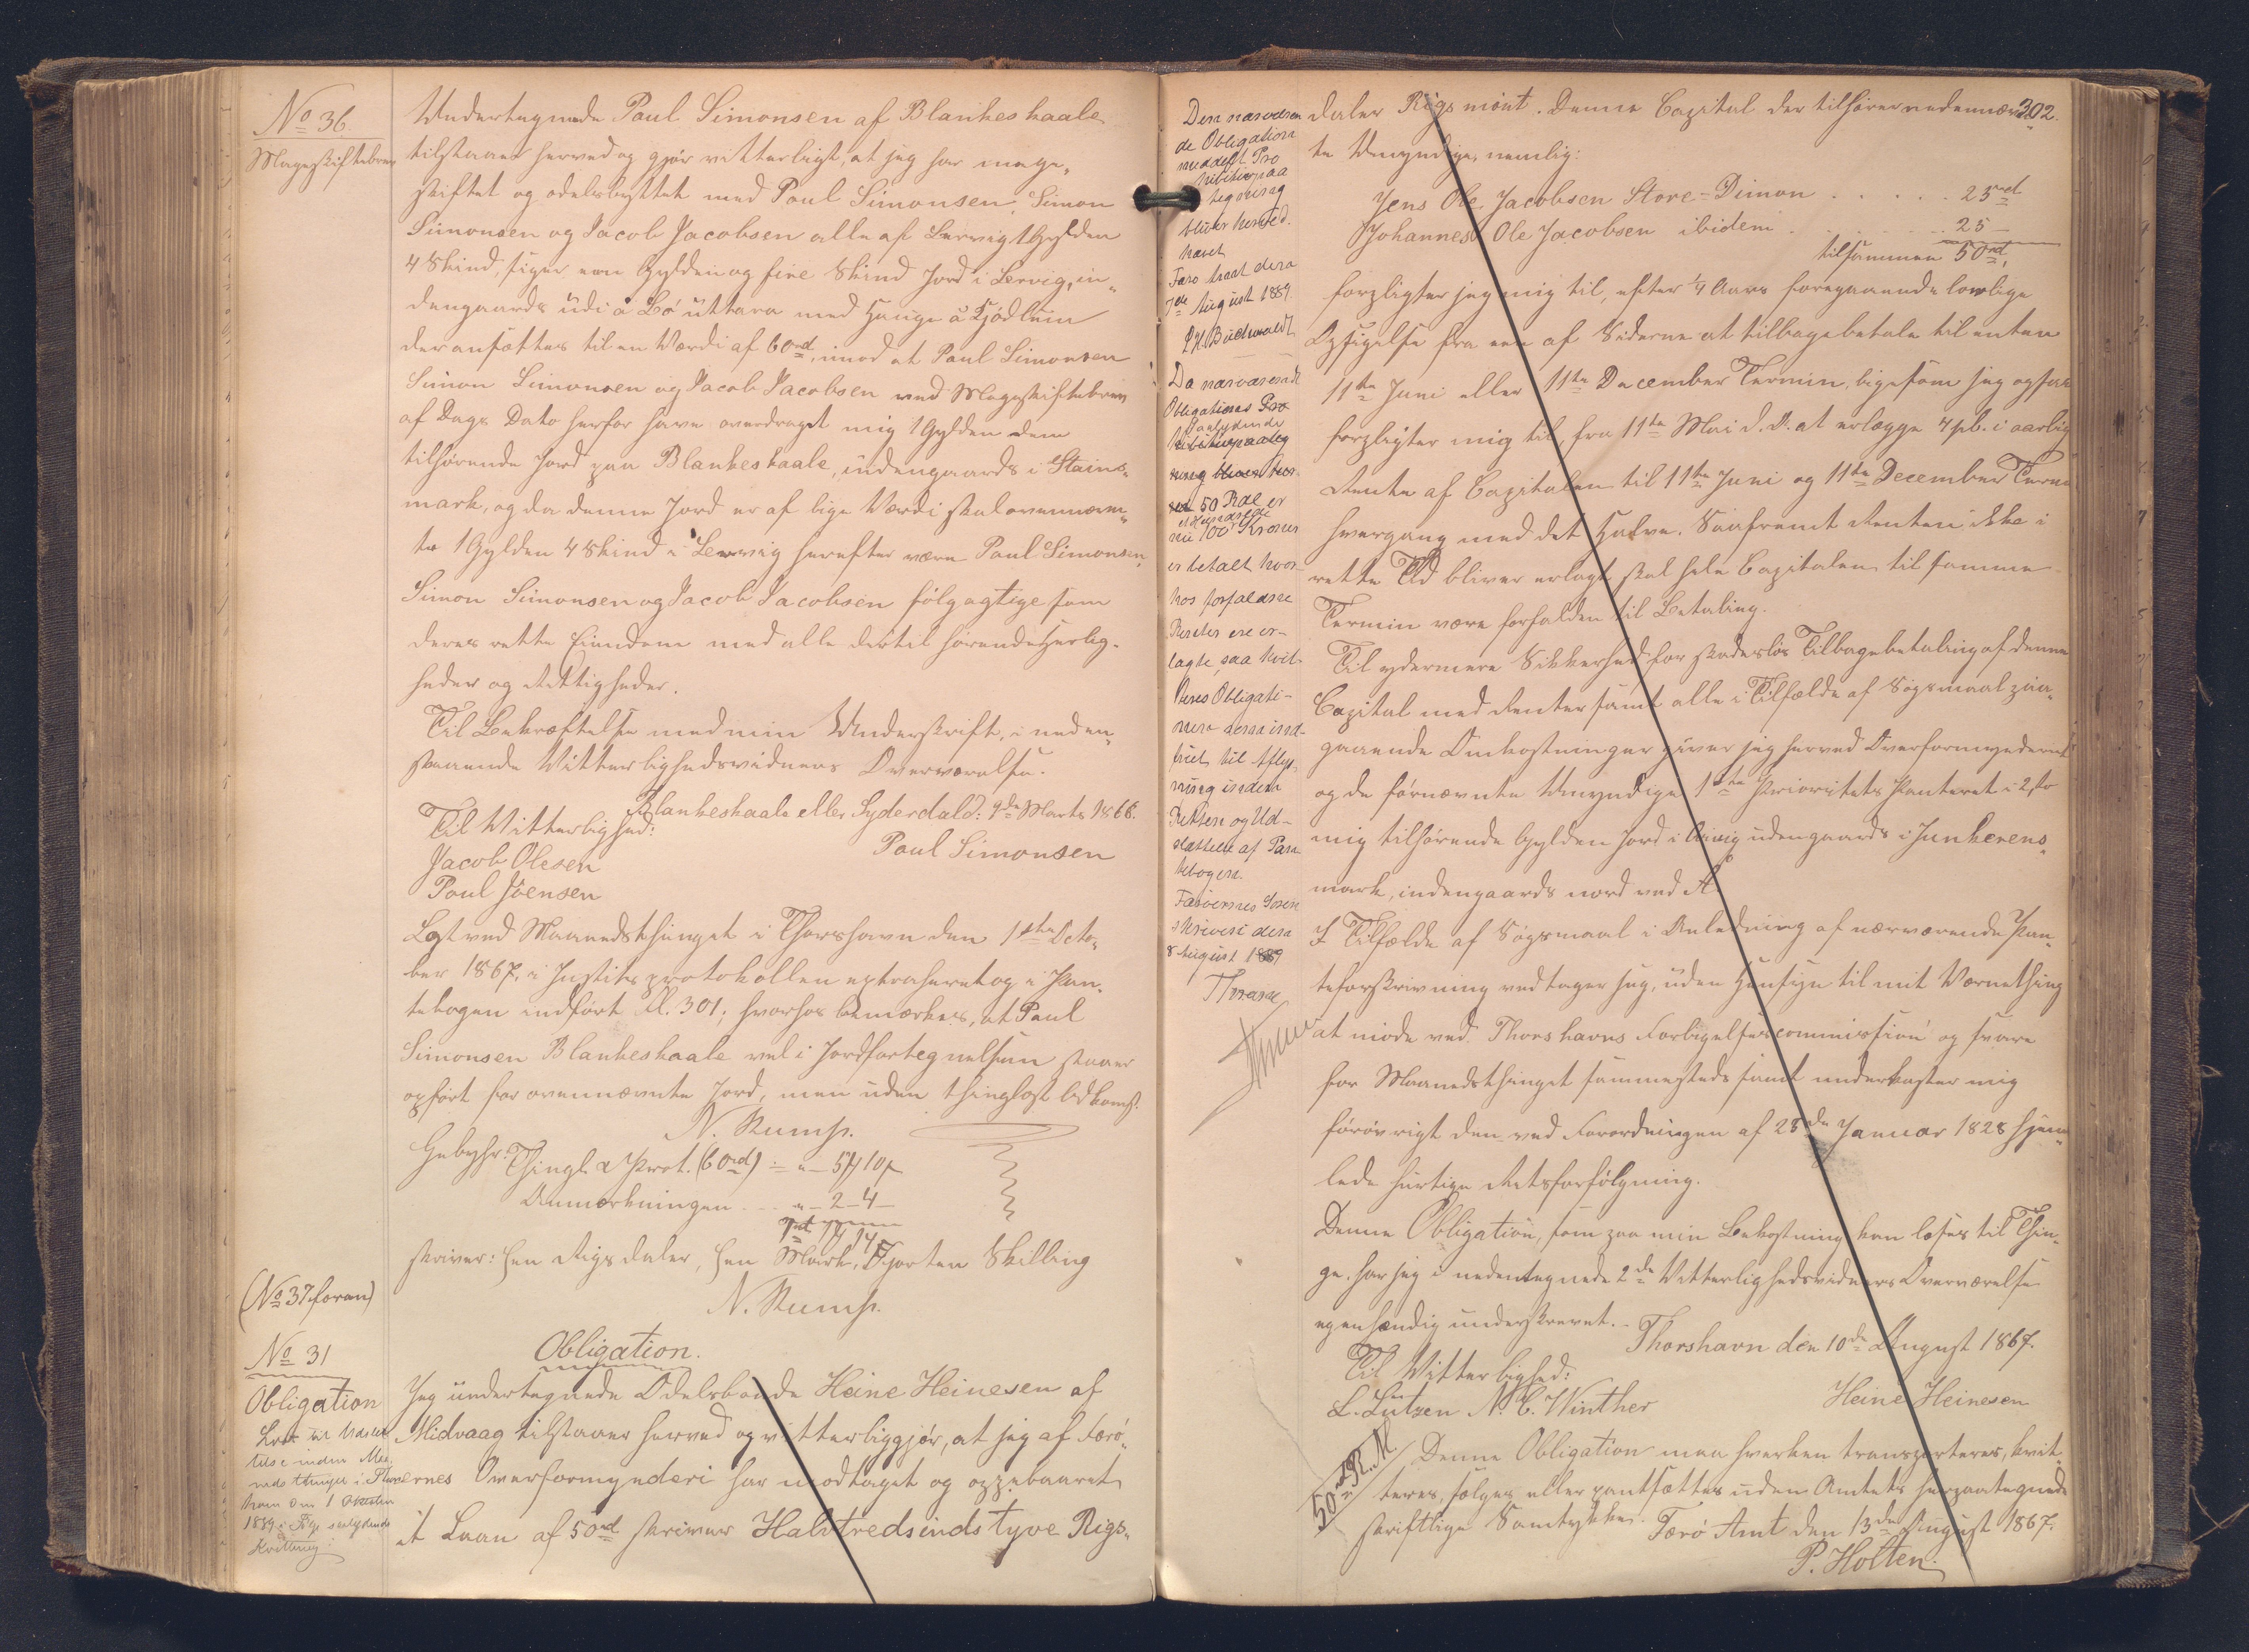 No 36.
Mageskiftebrev
Undertegnede Paul Simonsen af Blankeskaale
tilstaaer herved og gjør vitterligt, at jeg har mage-
skiftet og odelsbyttet med Poul Simonsen, Simon
Simonsen og Jacob Jacobsen alle af Lervig 1 Gylden
4 Skind, siger een Gylden og fire Skind Jord i Lervig, in-
dengaards udi á Bö úttara med Hauge á Kjödlum
der ansættes til en Værdi af 60rd, imod at Paul Simonsen
Simon Simonsen og Jacob Jacobsen ved Mageskiftebrev
af Dags Dato herfor have overdraget mig 1 Gylden dem
tilhørende Jord paa Blankeskaale, indengaards i Stains-
mark, og da denne Jord er af lige Værdi skal ovennævn-
te 1 Gylden 4 Skind i Lervig herefter være Paul Simonsen,
Simon Simonsen og Jacob Jacobsen følgagtige som
deres rette Eiendom med alle dertil hørende Herlig-
heder og Rettigheder.
Til Bekræftelse med min Underskrift, i neden-
staaende Vitterlighedsvidners Overværelse.
Blankeskaale eller Syderdald: 9de Marts 1866.
Til Vitterlighed:
Paul Simonsen
Jacob Olesen
Poul Jöensen
Læst ved Maanedsthinget i Thorshavn den 1ste Octo-
ber 1867, i Justitsprotokollen extraheret og i Pan-
tebogen indført Fol. 301; hvorhos bemærkes, at Paul
Simonsen Blankeskaale vel i Jordfortegnelsen staaer
opført for ovennævnte Jord, men uden thinglæst Adkomst.
N. Rump.
Gebyhr: Thingl. & Prot. (60rd) = „ - 5 10
Anmærkningen ... „ - 2 - 4 -
1rd 1 14
skriver: een Rigsdaler, een Mark, Fjorten Skilling
N. Rump.
(No 37 foran)
No 31
Obligation
Læst til Udslet-
telse inden Maa-
nedsthinget i Thors-
havn den 1 Oktober
1889 i Følge saalydende
Kvittering:
Obligation.
Jeg undertegnede Odelsbonde Heine Heinesen af
Midvaag tilstaaer herved og vitterliggjør, at jeg af Færö-
ernes Overformynderi har modtaget og oppebaaret
et Laan af 50rd skriver Halvtredsindstyve Rigs-
302.
Den nærværen
de Obligation
meddelt Pro
hibitivpaa
tegning
bliver herved
hævet
Færö Amt den
7de August 1889.
Buchwaldt
Da nærværende
Obligations Pro
saalydende
hibitivpaateg
ning bliver her
ved 50 Rdl er
et Hundrede
nu 100 Kroner
er betalt hvor-
hos forfaldne
Renter ere er-
lagte, saa kvit-
teres Obligati-
onen denne ind-
friet til Aflys-
ning inden
Retten og Ud-
slettelse af Pan-
tebogen.
Færöernes Soren
skriveri den
8 August 1889
daler Rigsmönt. Denne Capital der tilhører nedennævn-
te Umyndige, nemlig:
Jens Ole Jacobsen Store-Dimon . . . . . . 25rd
Johannes Ole Jacobsen ibidem . . . . . 25 -
tilsammen 50rd,
forpligter jeg mig til, efter 1/4 Aars foregaaende lovlige
Opsigelse fra een af Siderne at tilbagebetale til enten
11te Juni eller 11te December Termin, ligesom jeg ogsaa
forpligter mig til, fra 11te Mai d. A. at erlægge 4 pCt. i aarlig
Rente af Capitalen til 11te Juni og 11te December Termin
hvergang med det Halve. Saafremt Renten ikke i
rette Tid bliver erlagt skal hele Capitalen til samme
Termin være forfalden til Betaling.
Til ydermere Sikkerhed for skadeslös Tilbagebetaling af denne
Capital med Renter samt alle i Tilfælde af Søgsmaal paa-
gaaende Omkostninger giver jeg herved Overformynderiet
og de fornævnte Umyndige 1ste Prioritets Panteret i 2, to
mig tilhørende Gylden Jord i udengaards i Junkerens-
mark, indengaards nord ved Á
I Tilfælde af Søgsmaal i Anledning af nærværende Pan-
teforskrivning vedtager jeg, uden Hensyn til mit Værnething
at møde ved Thorshavns Forligelsescommission og svare
for Maanedsthinget sammesteds samt underkaster mig
forøvrigt den ved Forordningen af 28de Januar 1828 hjem-
lede hurtige Retsforfølgning.
Denne Obligation, som paa min Bekostning kan læses til Thin-
ge, har jeg i nedentegnede 2de Vitterlighedsvidners Overværelse
egenhændig underskrevet. -
Thorshavn den 10de August 1867.
Til Vitterlighed:
Heine Heinesen
L. Lützen N. C. Winther
50rd R. M.
Denne Obligation maa hverken transporteres, kvit-
teres, sælges eller pantsættes uden Amtets herpaategnede
skriftlige Samtykke. Færö Amt den 13de August 1867.
P. Holten.